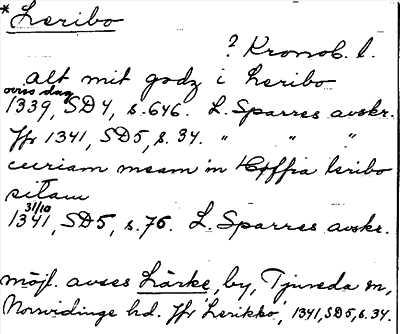 * Leribo
? Kronob. l.
alt mit godz i leribo
oviss dag
1339, SD4, s. 646. L. Sparres avskr.
Jfr 1341, SD5, s. 34. " " "
curiam meam in leribo
sitam
31/10
1341, SD5, s. 76. L. Sparres avskr.
möjl. avses Lärke, by, Tjureda sn,
Norrvidinge hd. Jfr 'Lerikko', 1341, SD5, s. 34.